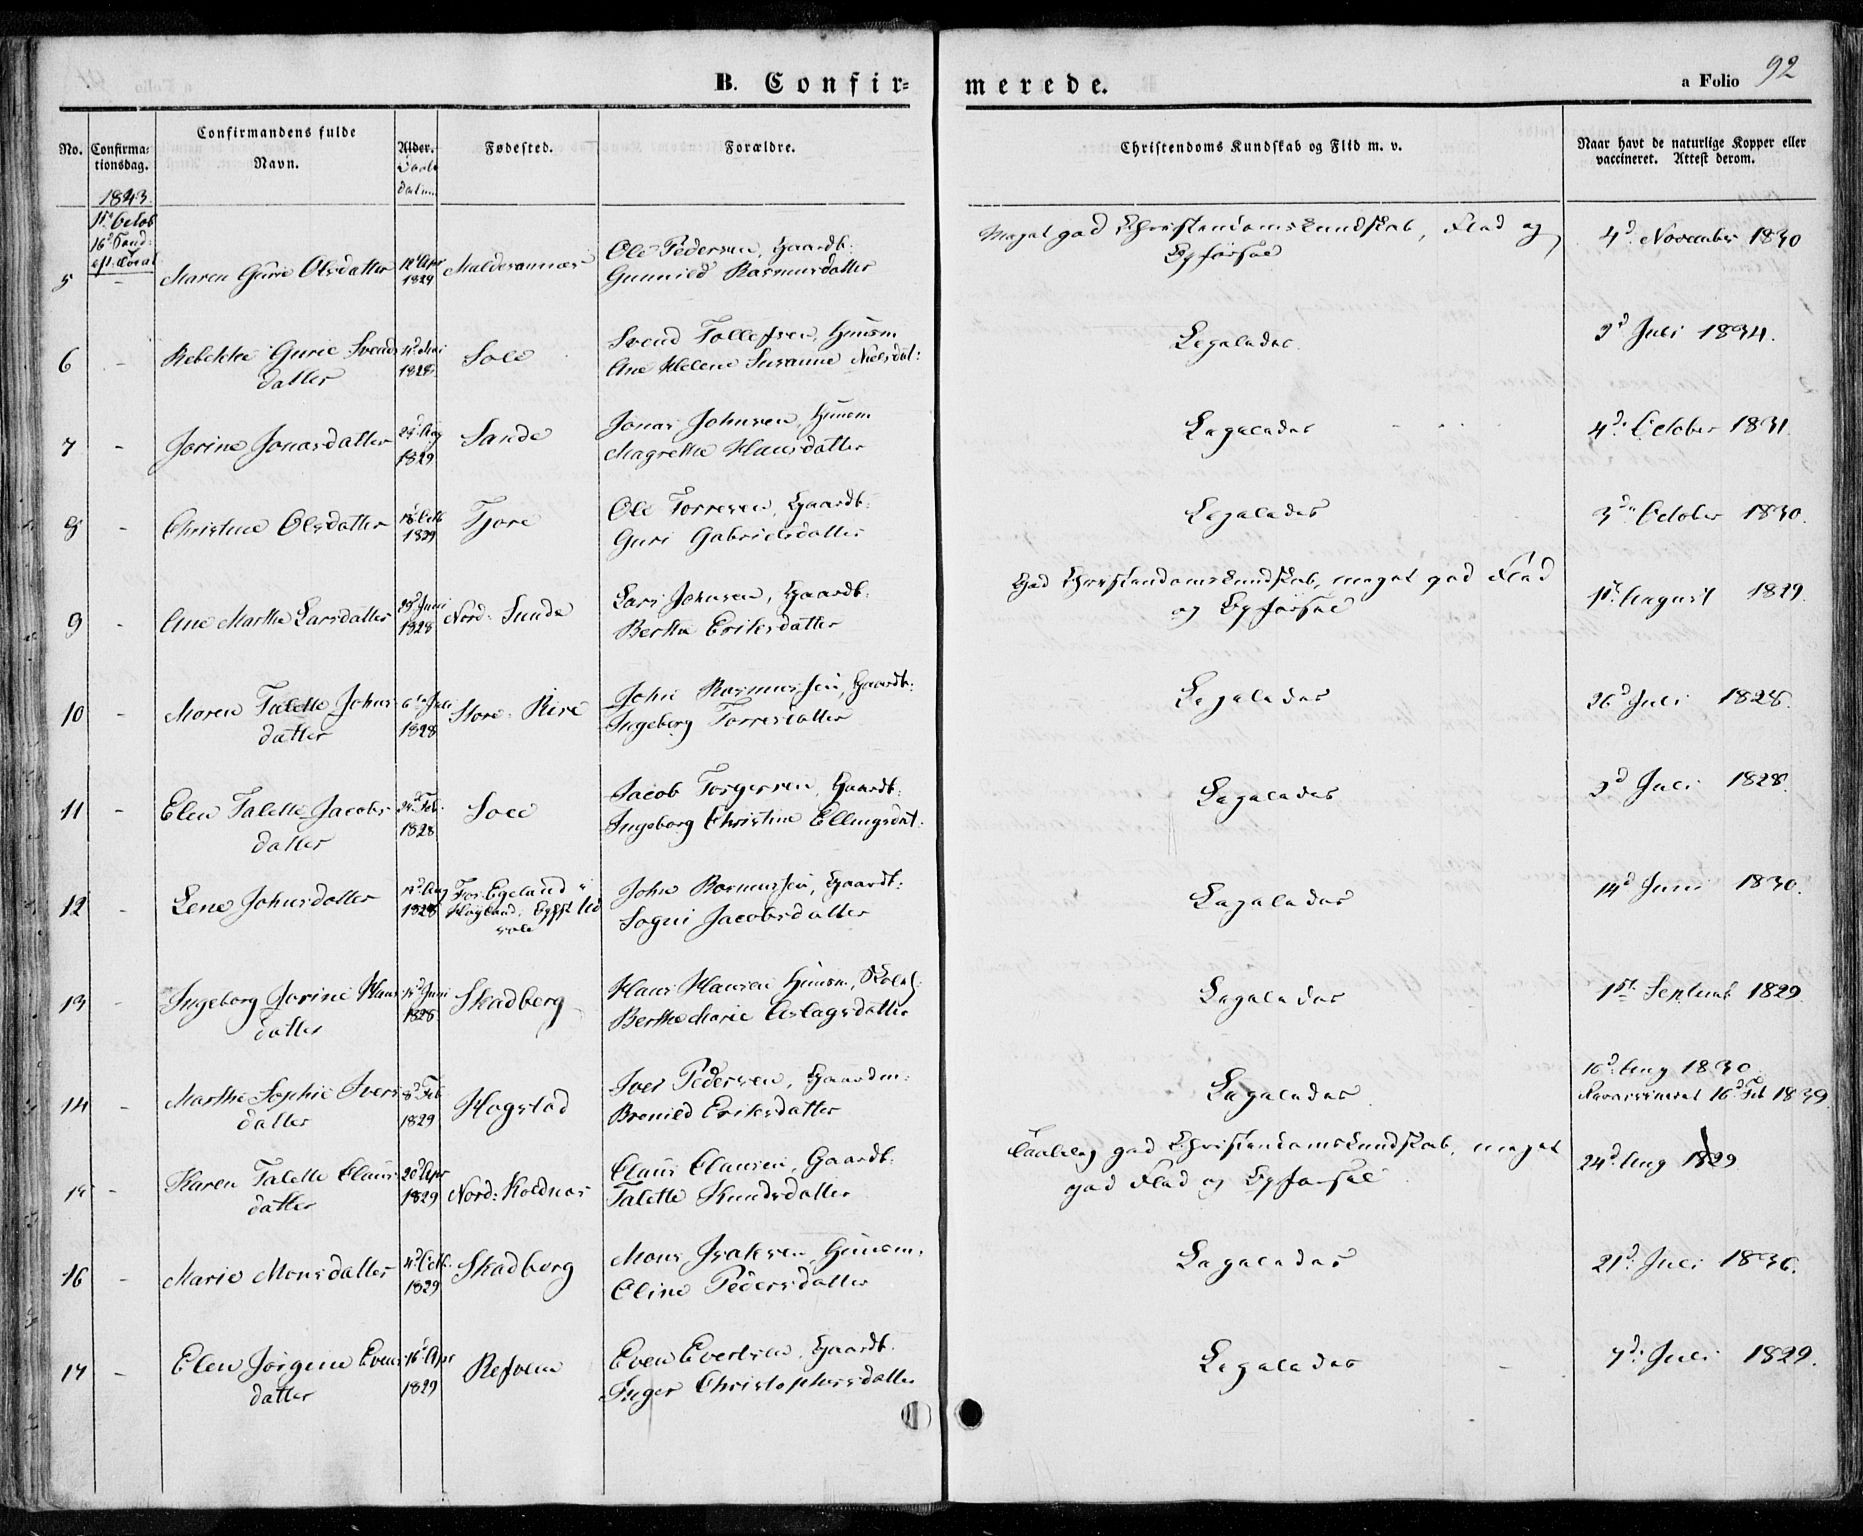 B. Confir=
merede.
a Folio 92
No.
Confirma=
tionsdag.
Confirmandens fulde
Navn.
Alder.
Fødested.
Forældre.
Christendoms Kundskab og Flid m. v.
Naar havt de naturlige Kopper eller
vaccineret. Attest derom.
1843
1ste Octob
16d Sønd:
eft. Trinit
5 - Maren Gurie Olsdatter 12d Apr 1829
Ole Pedersen, Gaardb:
Gunnild Rasmusdatter
Meget god Christendomskundskab, Flid og
Opførsel
4d November 1830
6 - Rebekka Gurie Svends
datter
1828 Sole
Svend Tollefsen, Huusm
Ane Helene Susanne Nielsdat:
Ligeledes
3d Juli 1834.
7 - Jorine Jonasdatter 24d Aug 1829 Sande
Jonas Johnsen, Huusm
Magrethe Hansdatter
Ligeledes
4d October 1831
8 - Christine Olsdatter 18d Octb 1829 Tjore
Ole Torresen, Gaardb:
Guri Gabrielsdatter
Ligeledes
3d October 1830.
9 - Ane Marthe Larsdatter 1828 Nord: Sunde
Lars Johnsen, Gaardb:
Berthe Eriksdatter
God Christendomskundskab, meget god Flid
og Opførsel
1st August 1829
10 - Maren Talette Johns
datter
1828 Store Rire
John Rasmussen, Gaardb:
Ingeborg Torresdatter
Ligeledes
26d Juli 1828.
11 - Elen Talette Jacobs
datter
24d Feb. 1828 Sole
Jacob Torgersen, Gaardb:
Ingeborg Christine Ellingsdat:
Ligeledes
3d Juli 1828.
12 - Lene Johnsdatter 1828 Tor Egeland i
Høyland,
John Rasmussen, Gaardb:
Sogni Jacobsdatter
Ligeledes
14d Juni 1830.
13 - Ingeborg Jorine Hans
datter
1828 Skadberg
Hans Hansen Huusm,
Berthe Marie Aslagsdatter
Ligeledes
1st Septemb 1829
14 - Marthe Sophie Ivers
datter
8d Feb 1829 Hogstad
Iver Pedersen, Gaardm:
Brønild Eriksdatter
Ligeledes
16d Aug 1830.
Revaccineret 16d Feb 1839.
15 - Karen Talette Claus
datter
20d Apr 1829 Nord: Koldnæs
Claus Clausen, Gaardb:
Talette Knudsdatter
Taalelig god Christendomskundskab, meget
god Flid og Opførsel
24d Aug 1829
16 - Marie Monsdatter 4d Octb. 1829 Skadberg
Mons Isaksen, Huusm.
Oline Pedersdatter
Ligeledes
21d Juli 1836.
17 - Elen Jørgine Evens
datter
16d Apr 1829 Refvem
Even Evertsen, Gaardb.
Inger Christophersdatter
Ligeledes -
7d Juli 1829.